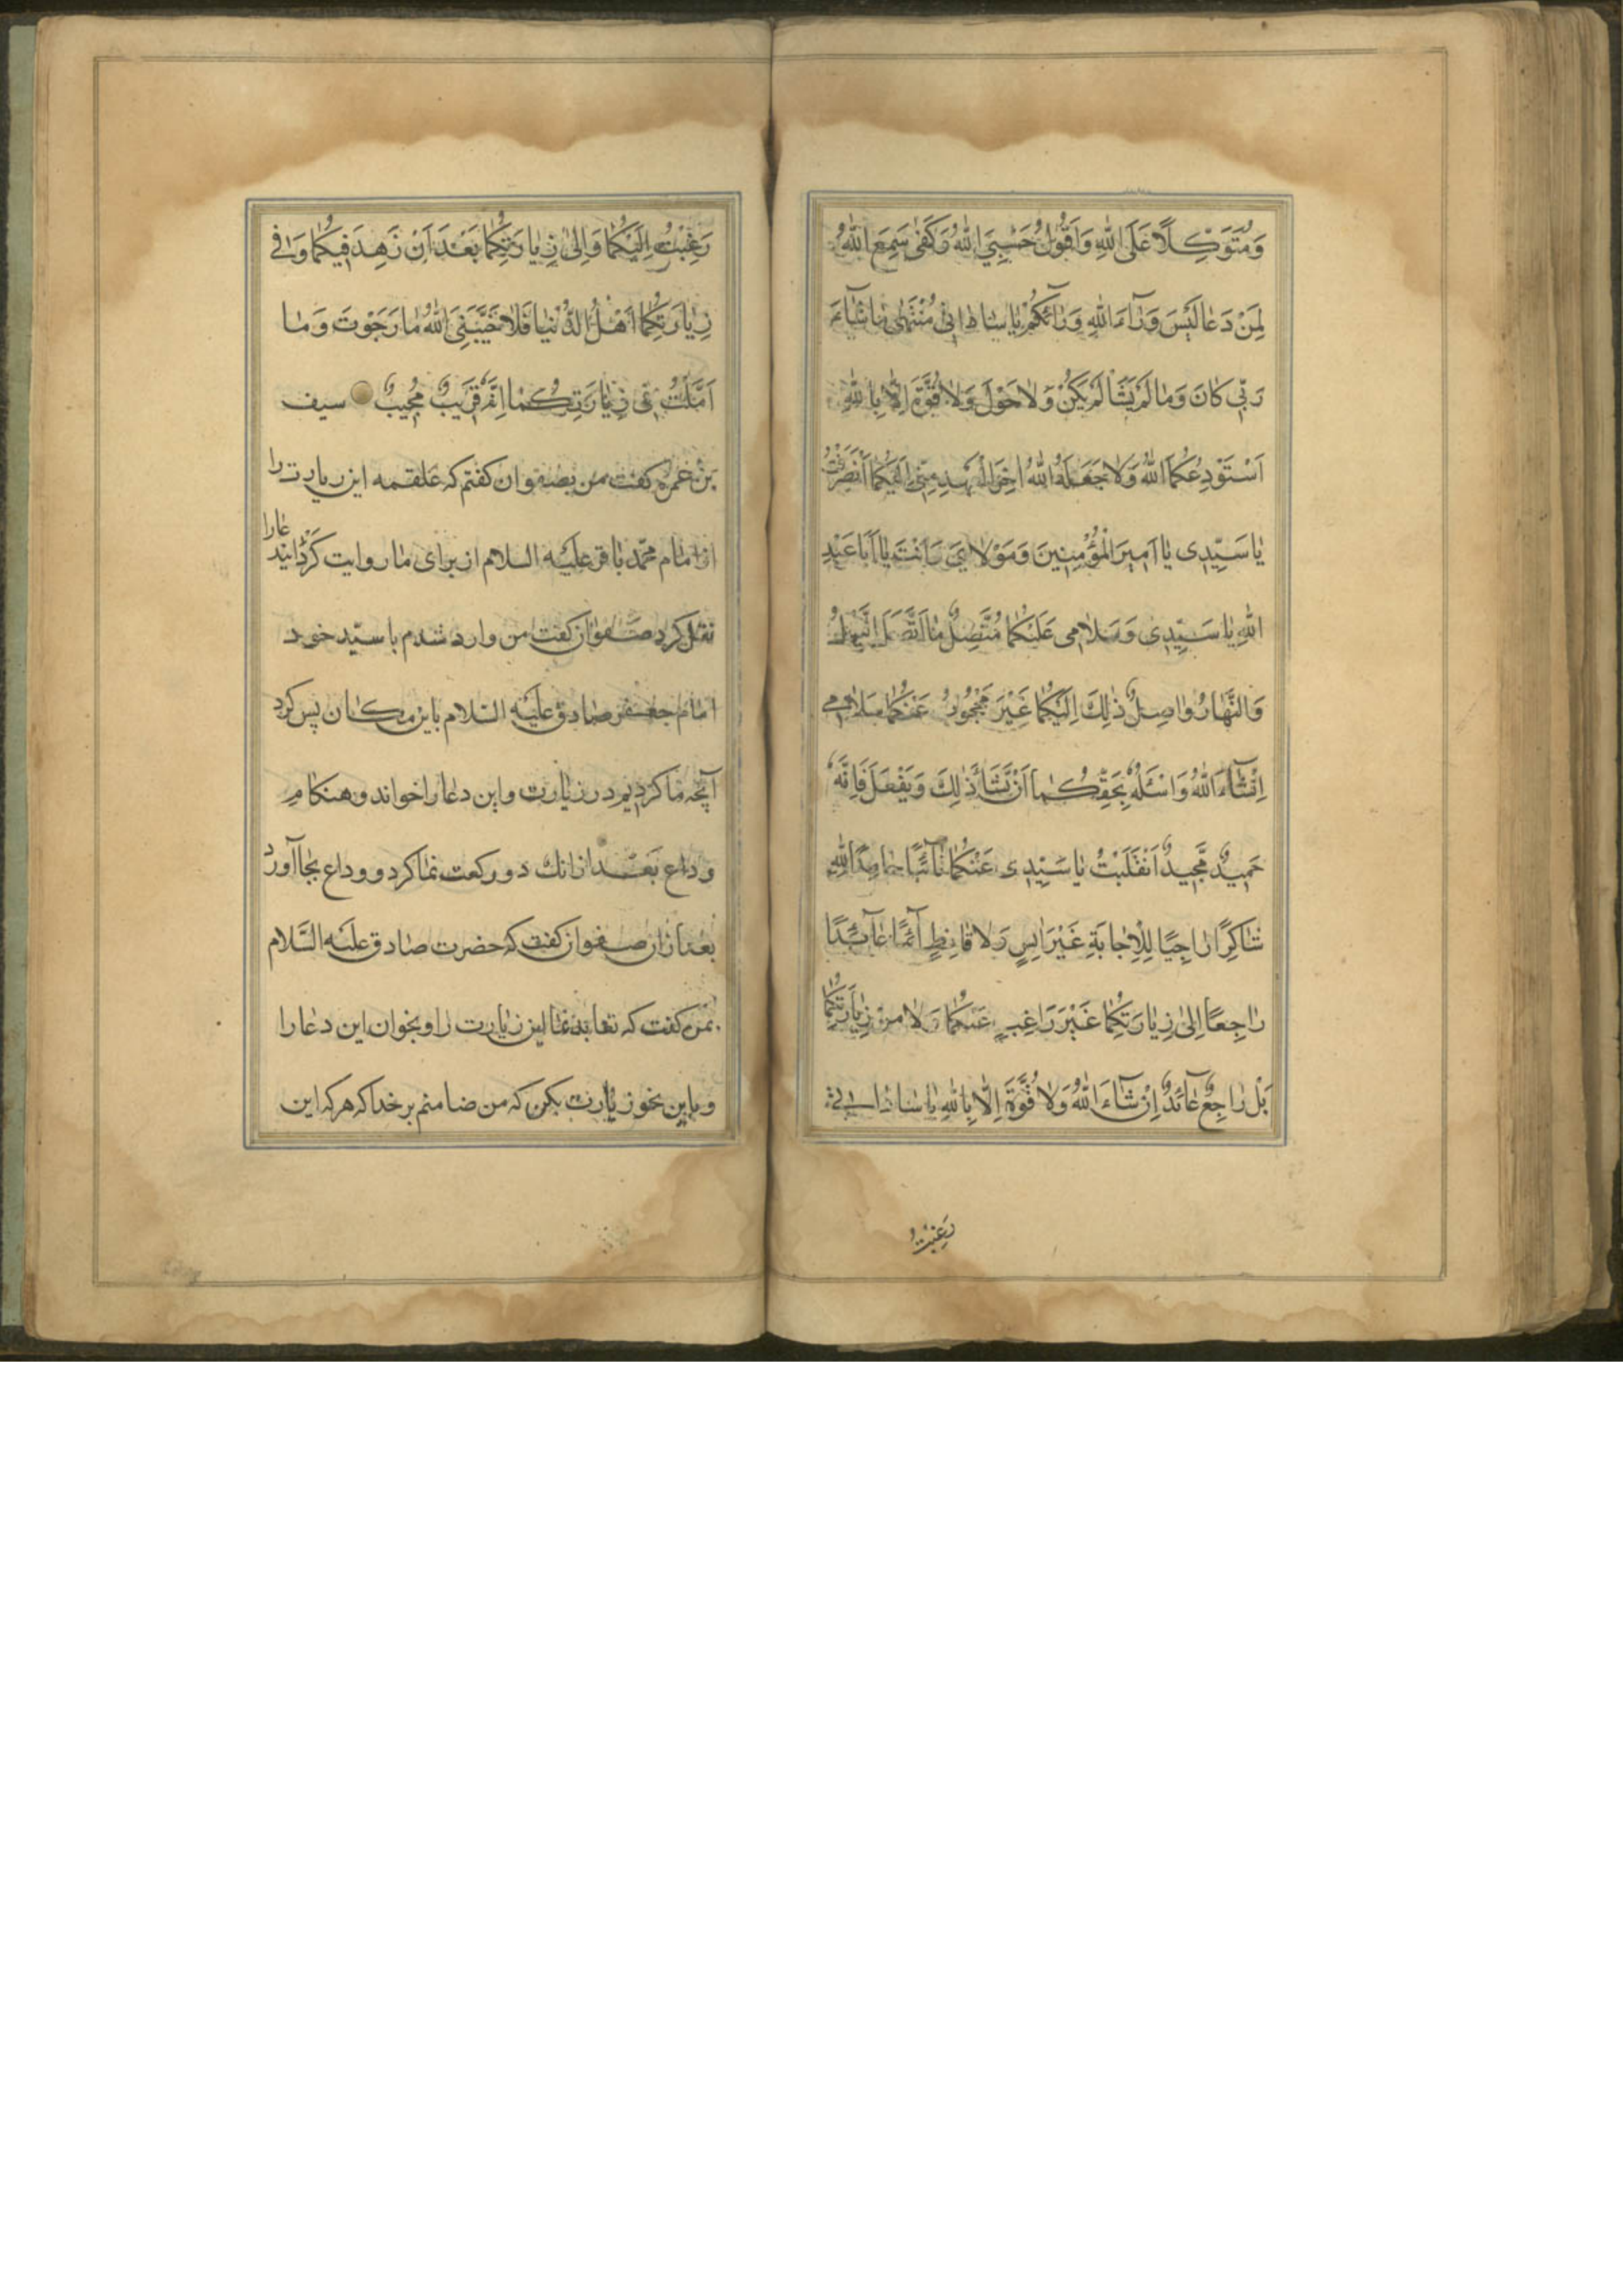 وَمُتَوَكِّلًا عَلَى اللّٰهِ وَاَقُوْلُ حَسْبِيَ اللّٰهُ وَكَفٰى سَمِعَ اللّٰهُ
لِمَنْ دَعٰا لَيْسَ وَرٰآءَ اللّٰهِ وَرٰآئَكُمْ يٰا سٰادٰاتِى مُنْتَهٰى مٰا شٰآءَ
رَبّى كٰانَ وَمٰا لَمْ يَشَأْ لَمْ يَكُنْ وَلٰا حَوْلَ وَلٰا قُوَّةَ اِلّٰا بِاللّٰهِ
اَسْتَوْدِعُكُمَا اللّٰهَ وَلٰا جَعَلَهُ اللّٰهُ اٰخِرَ الْعَهْدِ مِنّى اِلَيْكُمٰا اَنْصَرَفْتُ
يٰا سَيِّدِى يٰا اَمِيرَ الْمُؤْمِنِينَ وَمَوْلٰاىَ وَاَنْتَ يٰا اَبٰا عَبْدِ
اللّٰهِ يٰا سَيِّدِى وَسَلٰامِى عَلَيْكُمٰا مُتَّصِلٌ مٰا اتَّصَلَ اللَّيْلُ
وَالنَّهٰارُ وٰاصِلٌ ذٰلِكَ اِلَيْكُمٰا غَيْرَ مَحْجُوبٍ عَنْكُمٰا سَلٰامِى
اِنْشٰآءَ اللّٰهُ وَاَسْئَلُهُ بِحَقِّكُمٰا اَنْ يَشٰآءَ ذٰلِكَ وَيَفْعَلَ فَاِنَّهُ
حَمِيدٌ مَّجِيدٌ اَنْقَلَبْتُ يٰا سَيِّدِى عَنْكُمٰا تٰآئِبًا حٰامِدًا لِلّٰهِ
شٰاكِرًا رٰاجِيًا لِلْاِجٰابَةِ غَيْرَ اٰيِسٍ وَلٰا قٰانِطٍ اٰئِبًا عٰآئِدًا
رٰاجِعًا اِلىٰ زِيٰارَتِكُمٰا غَيْرَ رٰاغِبٍ عَنْكُمٰا وَلٰا مِنْ زِيٰارَتِكُمٰا
بَلْ رٰاجِعٌ عٰآئِدٌ اِنْ شٰآءَ اللّٰهُ وَلٰا قُوَّةَ اِلّٰا بِاللّٰهِ يٰا سٰادٰاتِى
رَغِبْتُ
رَغِبْتُ اِلَيْكُمٰا وَاِلىٰ زِيٰارَتِكُمٰا بَعْدَ اَنْ زَهِدَ فِيكُمٰا وَفى
زِيٰارَتِكُمٰا اَهْلُ الدُّنْيٰا فَلٰا خَيَّبَنِىَ اللّٰهُ مٰا رَجَوْتُ وَمٰا
اَمَّلْتُ فى زِيٰارَتِكُمٰا اِنَّهُ قَرِيبٌ مُجِيبٌ سيف
بن عميره كفت من بصفوان كفتم كه علقمه اين زيارت را
از امام محمّد باقر عليه السلام از براى ما روايت كرد اين دعا را
نقل نكرد صفوان كفت من وارد شدم با سيّد خود
امام جعفر صادق عليه السّلام باين مكان پس كرد
آنچه ما كرديم در زيارت واين دعا را خواند و هنكام
وداع بعد از انك دو ركعت نماز كرد و وداع بجا آورد
بعد از ان صفوان كفت كه حضرت صادق عليه السّلام
بمن كفت كه تعاهد نما اين زيارت را و بخوان اين دعا را
و باين نحو زيارت بكن كه من ضامنم بر خدا كه هر كه اين